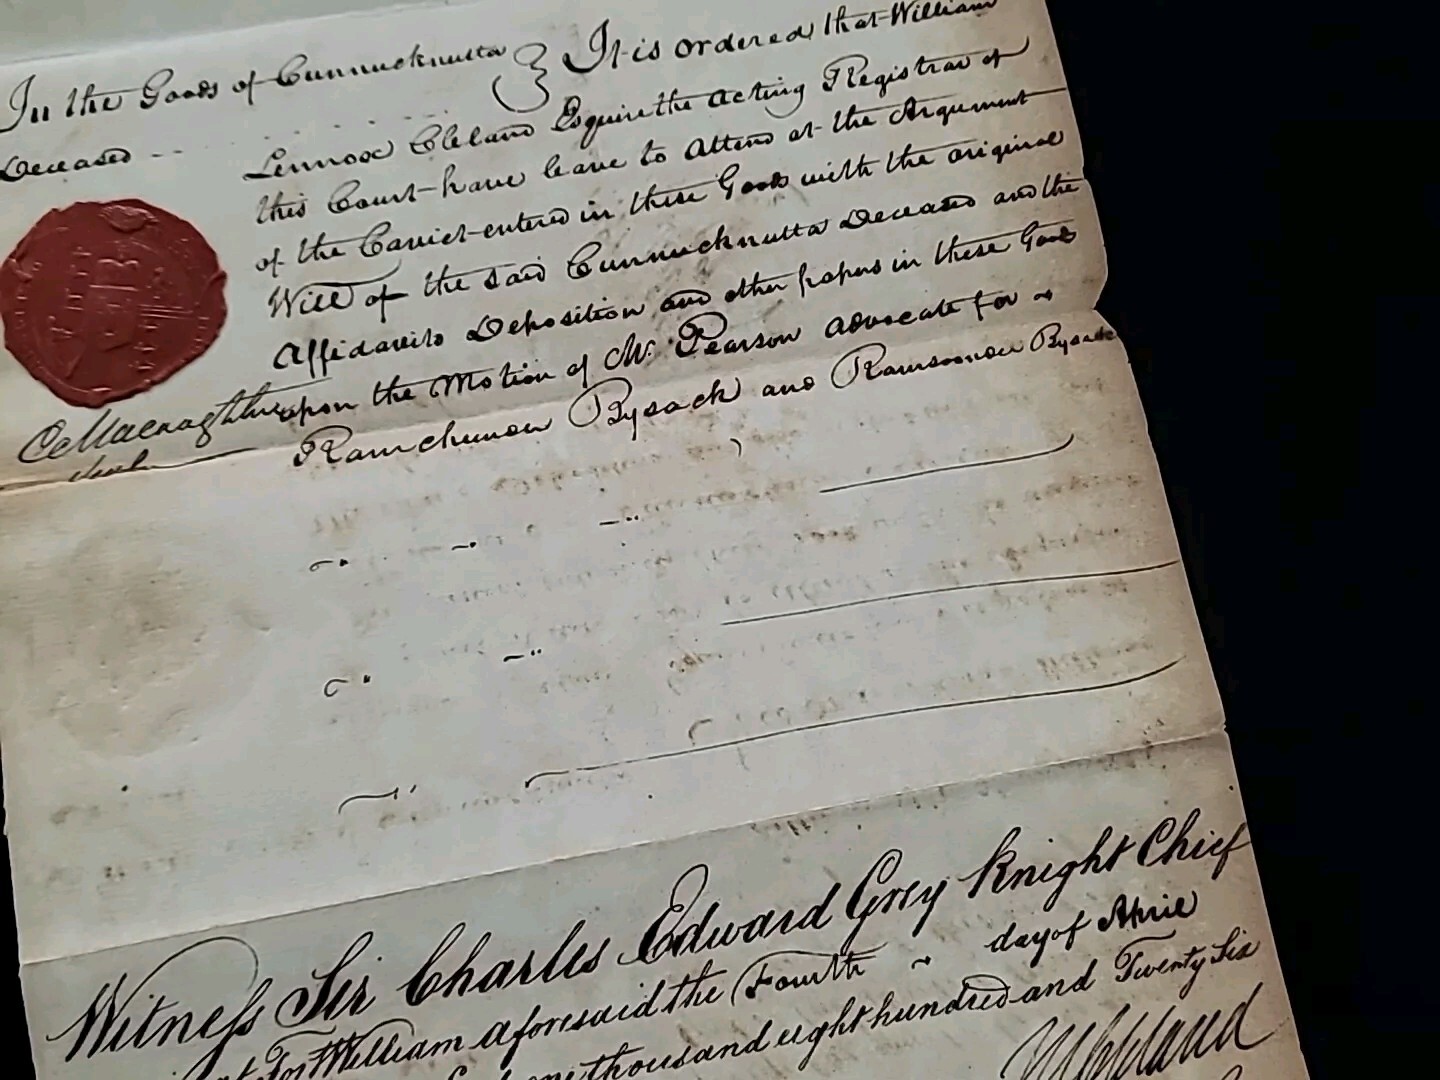 In the Goods of Cunnucknutta
Deceased
It is ordered that William
Lennox Cleland Esquire the Acting Registrar of
this Court have leave to Attend at the Argument
of the Caviet entered in these Goods with the original
Will of the said Cunnucknutta Deceased and the
Affidavits Deposition and other papers in these Goods
upon the Motion of Mr. Pearson Advocate for
Ramchunder Bysack and Bysack
Witness Sir Charles Edward Grey Knight Chief
at Fort William aforesaid the Fourth day of April
one thousand eight hundred and Twenty Six